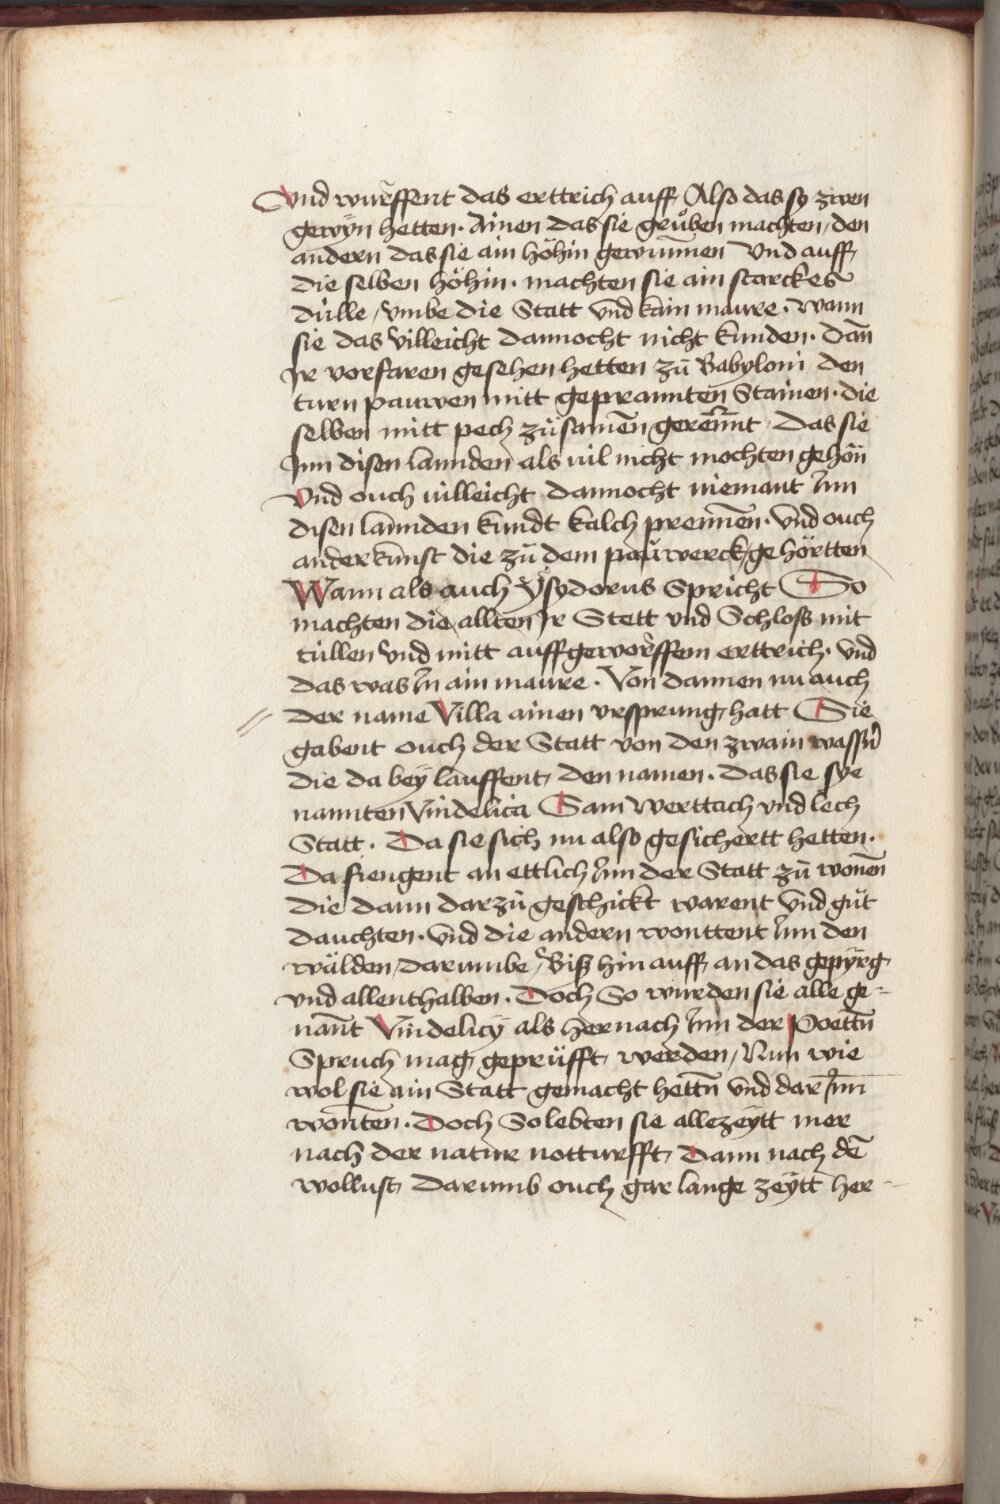 Vnd wurffent das erttrich auff Also das sy zwen
gewÿn hetten. Ainen das sie grůben machten / den
andern das sie ain höhin gewunnen Vnd auff
die selben höhin. machten sie ain starckes
dülle / vmbe die Statt vnd kain maure. wann
sie das villeicht dannocht nicht kunden. Dañ
Ir vorfaren gesehen hetten zů Babyloni den
turn pauwen mitt geprannten Stainen. die
selben mitt pech zůsamen gerennt, Das sie
Inn disen lannden als vil nicht mochten gehön
Vnd ouch villeicht dannocht niemant Inn
disen lannden kundt kalch prennen. Vnd ouch
ander kunst die zů dem paůwerck / gehörtten
Wann als auch Ysydorus Spricht So
machten die allten Ir Stett vnd Schloß mit
tüllen Vnd mitt auffgeworffem erttrich. Vnd
das was In ain maure. Von dannen nu auch
der name Villa ainen vrsprung hatt Sie
gabent ouch der Statt von den zwain wassern
die da beÿ lauffent, den namen. Das sie sye
nannten Vindelica Sam werttach vnd lech
Statt. Da sie sich nu also gesichertt hetten.
Da fiengent an ettlich Inn der Statt zů wonen
die dann darzů geschickt warent Vnd gůt
dauchten. Vnd die andern wonttent Inn den
wälden / darumbe / Biß hin auff an das gepÿrg
vnd allenthalben. Doch So wurden sie alle ge=
nannt Vindelicÿ als hernach Inn der Poettn
Spruch mag geprüfft werden / Nun wie
wol sie ain Statt gemacht hettn Vnd dar Inn
wonten. Doch So lebten sie allezeÿtt mer
nach der natur notturfft, Dann nach dē
wollust, Darumb ouch gar lange zeÿtt her=